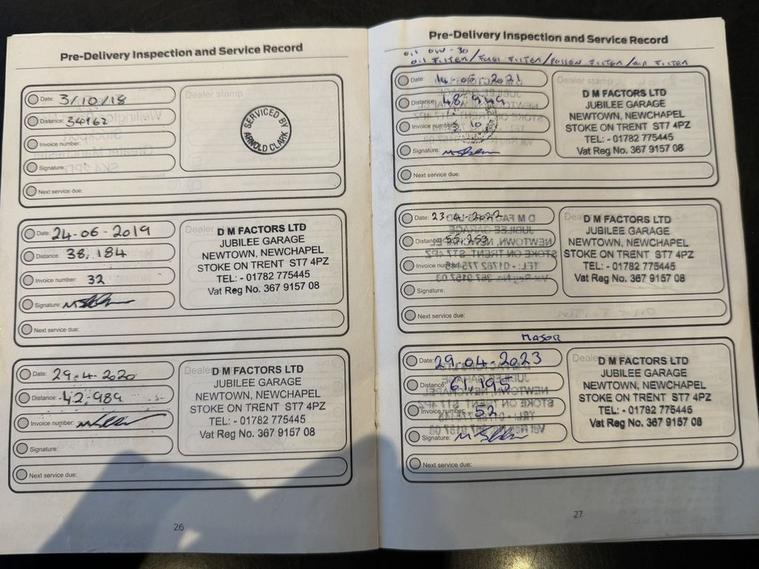 Pre-Delivery Inspection and Service Record
Date: 3/10/18
Dealer stamp
Distance: 34162
SERVICED BY
ARNOLD CLARK
Invoice number:
Signature:
Next service due:
Date: 24-06-2019
Distance: 38,184
Invoice number: 32
Signature:
Next service due:
D M FACTORS LTD
JUBILEE GARAGE
NEWTOWN, NEWCHAPEL
STOKE ON TRENT ST7 4PZ
TEL: - 01782 775445
Vat Reg No. 367 9157 08
Date: 29-4-2020
Distance: 42-989
Invoice number:
Signature:
Next service due:
D M FACTORS LTD
JUBILEE GARAGE
NEWTOWN, NEWCHAPEL
STOKE ON TRENT ST7 4PZ
TEL: - 01782 775445
Vat Reg No. 367 9157 08
26
Pre-Delivery Inspection and Service Record
OIL 0W-30
OIL FILTER/FUEL FILTER/POLLEN FILTER/AIR FILTER
Date: 14-05-2021
Distance: 48,949
Invoice number:
Signature:
Next service due:
D M FACTORS LTD
JUBILEE GARAGE
NEWTOWN, NEWCHAPEL
STOKE ON TRENT ST7 4PZ
TEL: - 01782 775445
Vat Reg No. 367 9157 08
Date: 23-4-2022
Distance: 55,259
Invoice number:
Signature:
Next service due:
D M FACTORS LTD
JUBILEE GARAGE
NEWTOWN, NEWCHAPEL
STOKE ON TRENT ST7 4PZ
TEL: - 01782 775445
Vat Reg No. 367 9157 08
MAJOR
Date: 29.04.2023
Distance: 61,195
Invoice number: 52
Signature:
Next service due:
D M FACTORS LTD
JUBILEE GARAGE
NEWTOWN, NEWCHAPEL
STOKE ON TRENT ST7 4PZ
TEL: - 01782 775445
Vat Reg No. 367 9157 08
27